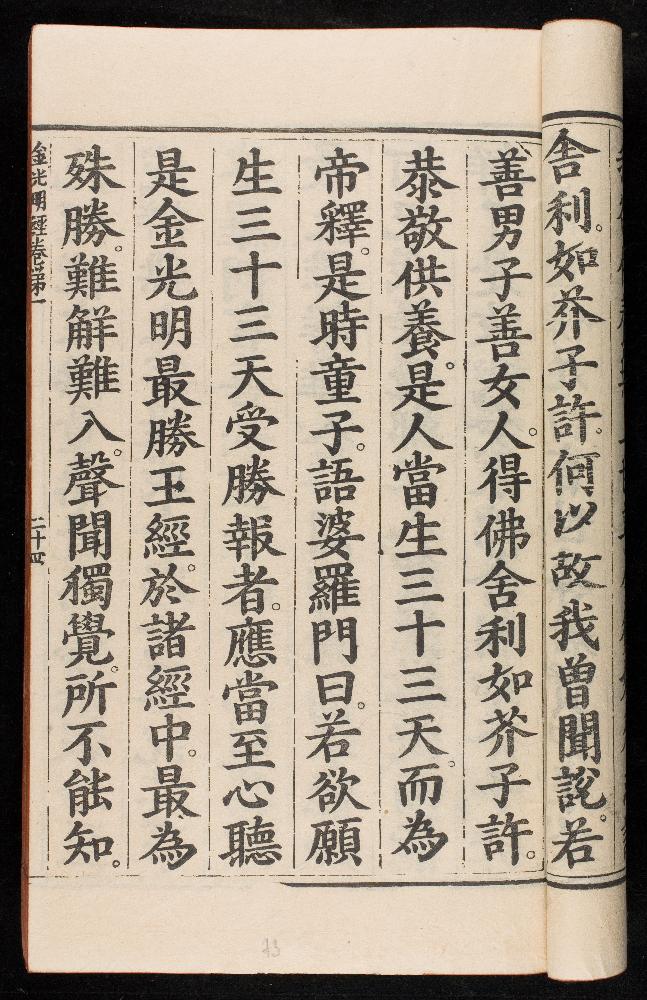 舎利。如芥子許。何以故我曾聞說。若
善男子善女人。得佛舍利如芥子許。
恭敬供養。是人當生三十三天。而為
帝釋。是時童子。語婆羅門曰。若欲願
生三十三天受勝報者。應當至心聽
是金光明最勝王經。於諸經中。最為
殊勝。難解難入。聲聞獨覺。所不能知。
金光明經卷第一
二十四
13